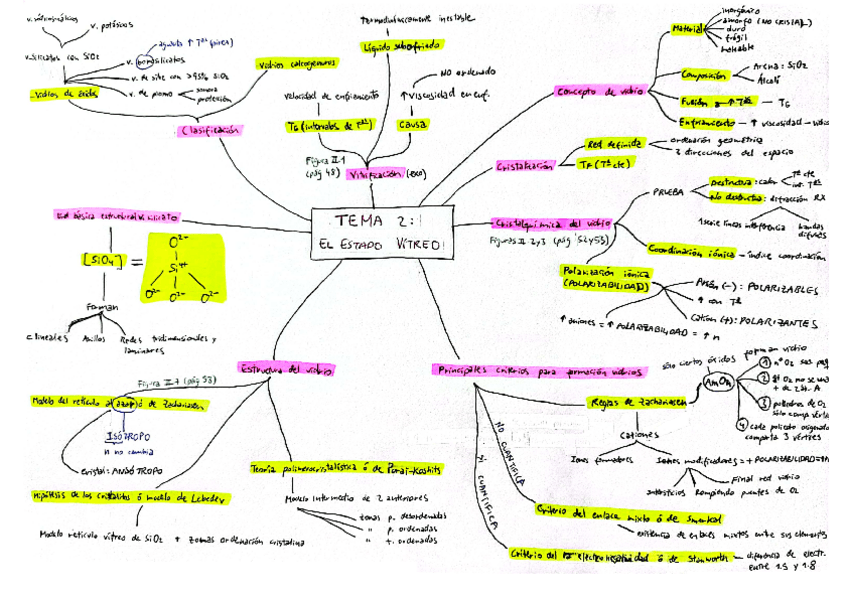 v. potásicos
v. silicatos con SiO₂
aguanta ↑ Tª (pirex)
v. borosilicatos
v. de sílice con >95% SiO₂
v. de plomo
sonora
protección
Vidrios de óxidos
Vidrios calcogenuros
Clasificación
Termodinámicamente inestable
Líquido subenfriado
velocidad de enfriamiento
No ordenado
↑ viscosidad en enf.
TG (intervalos de Tª)
causa
Figura II.1
(pág 48)
Vitrificación (exo)
Concepto de vidrio
Material
inorgánico
amorfo (NO CRISTAL)
duro
frágil
moldeable
Composición
Arena: SiO₂
Álcali
Fusión a ↑ Tª — TG
Enfriamiento — ↑ viscosidad — vidrio
Cristalización
Red definida
ordenación geométrica
3 direcciones del espacio
TF (Tª cte)
TEMA 2:
EL ESTADO VÍTREO
Cristalquímica del vidrio
Figuras II. 2 y 3 (pág 52 y 53)
PRUEBA
Destructiva: calor
Tª cte
int. Tª
No destructiva: difracción RX
1 serie líneas interferencia
bandas
difusas
Coordinación iónica — índice coordinación
Polarización iónica
(POLARIZABILIDAD)
Anión (-): POLARIZABLES
↑ con Tª
Catión (+): POLARIZANTES
↑ aniones = ↑ POLARIZABILIDAD = ↑ n
Ud básica estructural silicato
[SiO₄] =
O²⁻
Si⁴⁺
O²⁻ O²⁻ O²⁻
Forman
C. lineales
Anillos
Redes tridimensionales y
laminares
Estructura del vidrio
Figura II.7 (pág 53)
Modelo del retículo al azar ó de Zachariasen
ISÓTROPO
n no cambia
cristal: ANISÓTROPO
Hipótesis de los cristalitos ó modelo de Lebedev
Modelo retículo vítreo de SiO₂ + zonas ordenación cristalina
Teoría polimerocristalística ó de Porai-Koshits
Modelo intermedio de 2 anteriores
zonas p. desordenadas
" p. ordenadas
" t. ordenadas
Principales criterios para formación vidrios
NO CUANTIFICA
SÍ CUANTIFICA
Reglas de Zachariasen
sólo ciertos óxidos
forman vidrio
AmOn
1 nº O₂ sea peq
2 át O₂ no se una
+ de 2 át. A
3 poliedros de O₂
sólo comp. vértic
4 cada poliedro oxígeno
comparta 3 vértices
Cationes
Iones formadores
Iones modificadores =
Final red vidrio
Rompiendo puentes de O₂
Criterio del enlace mixto ó de Smekal
existencia de enlaces mixtos entre sus elementos
Criterio del electronegatividad ó de Stanworth — diferencia de electr.
entre 1.5 y 1.8